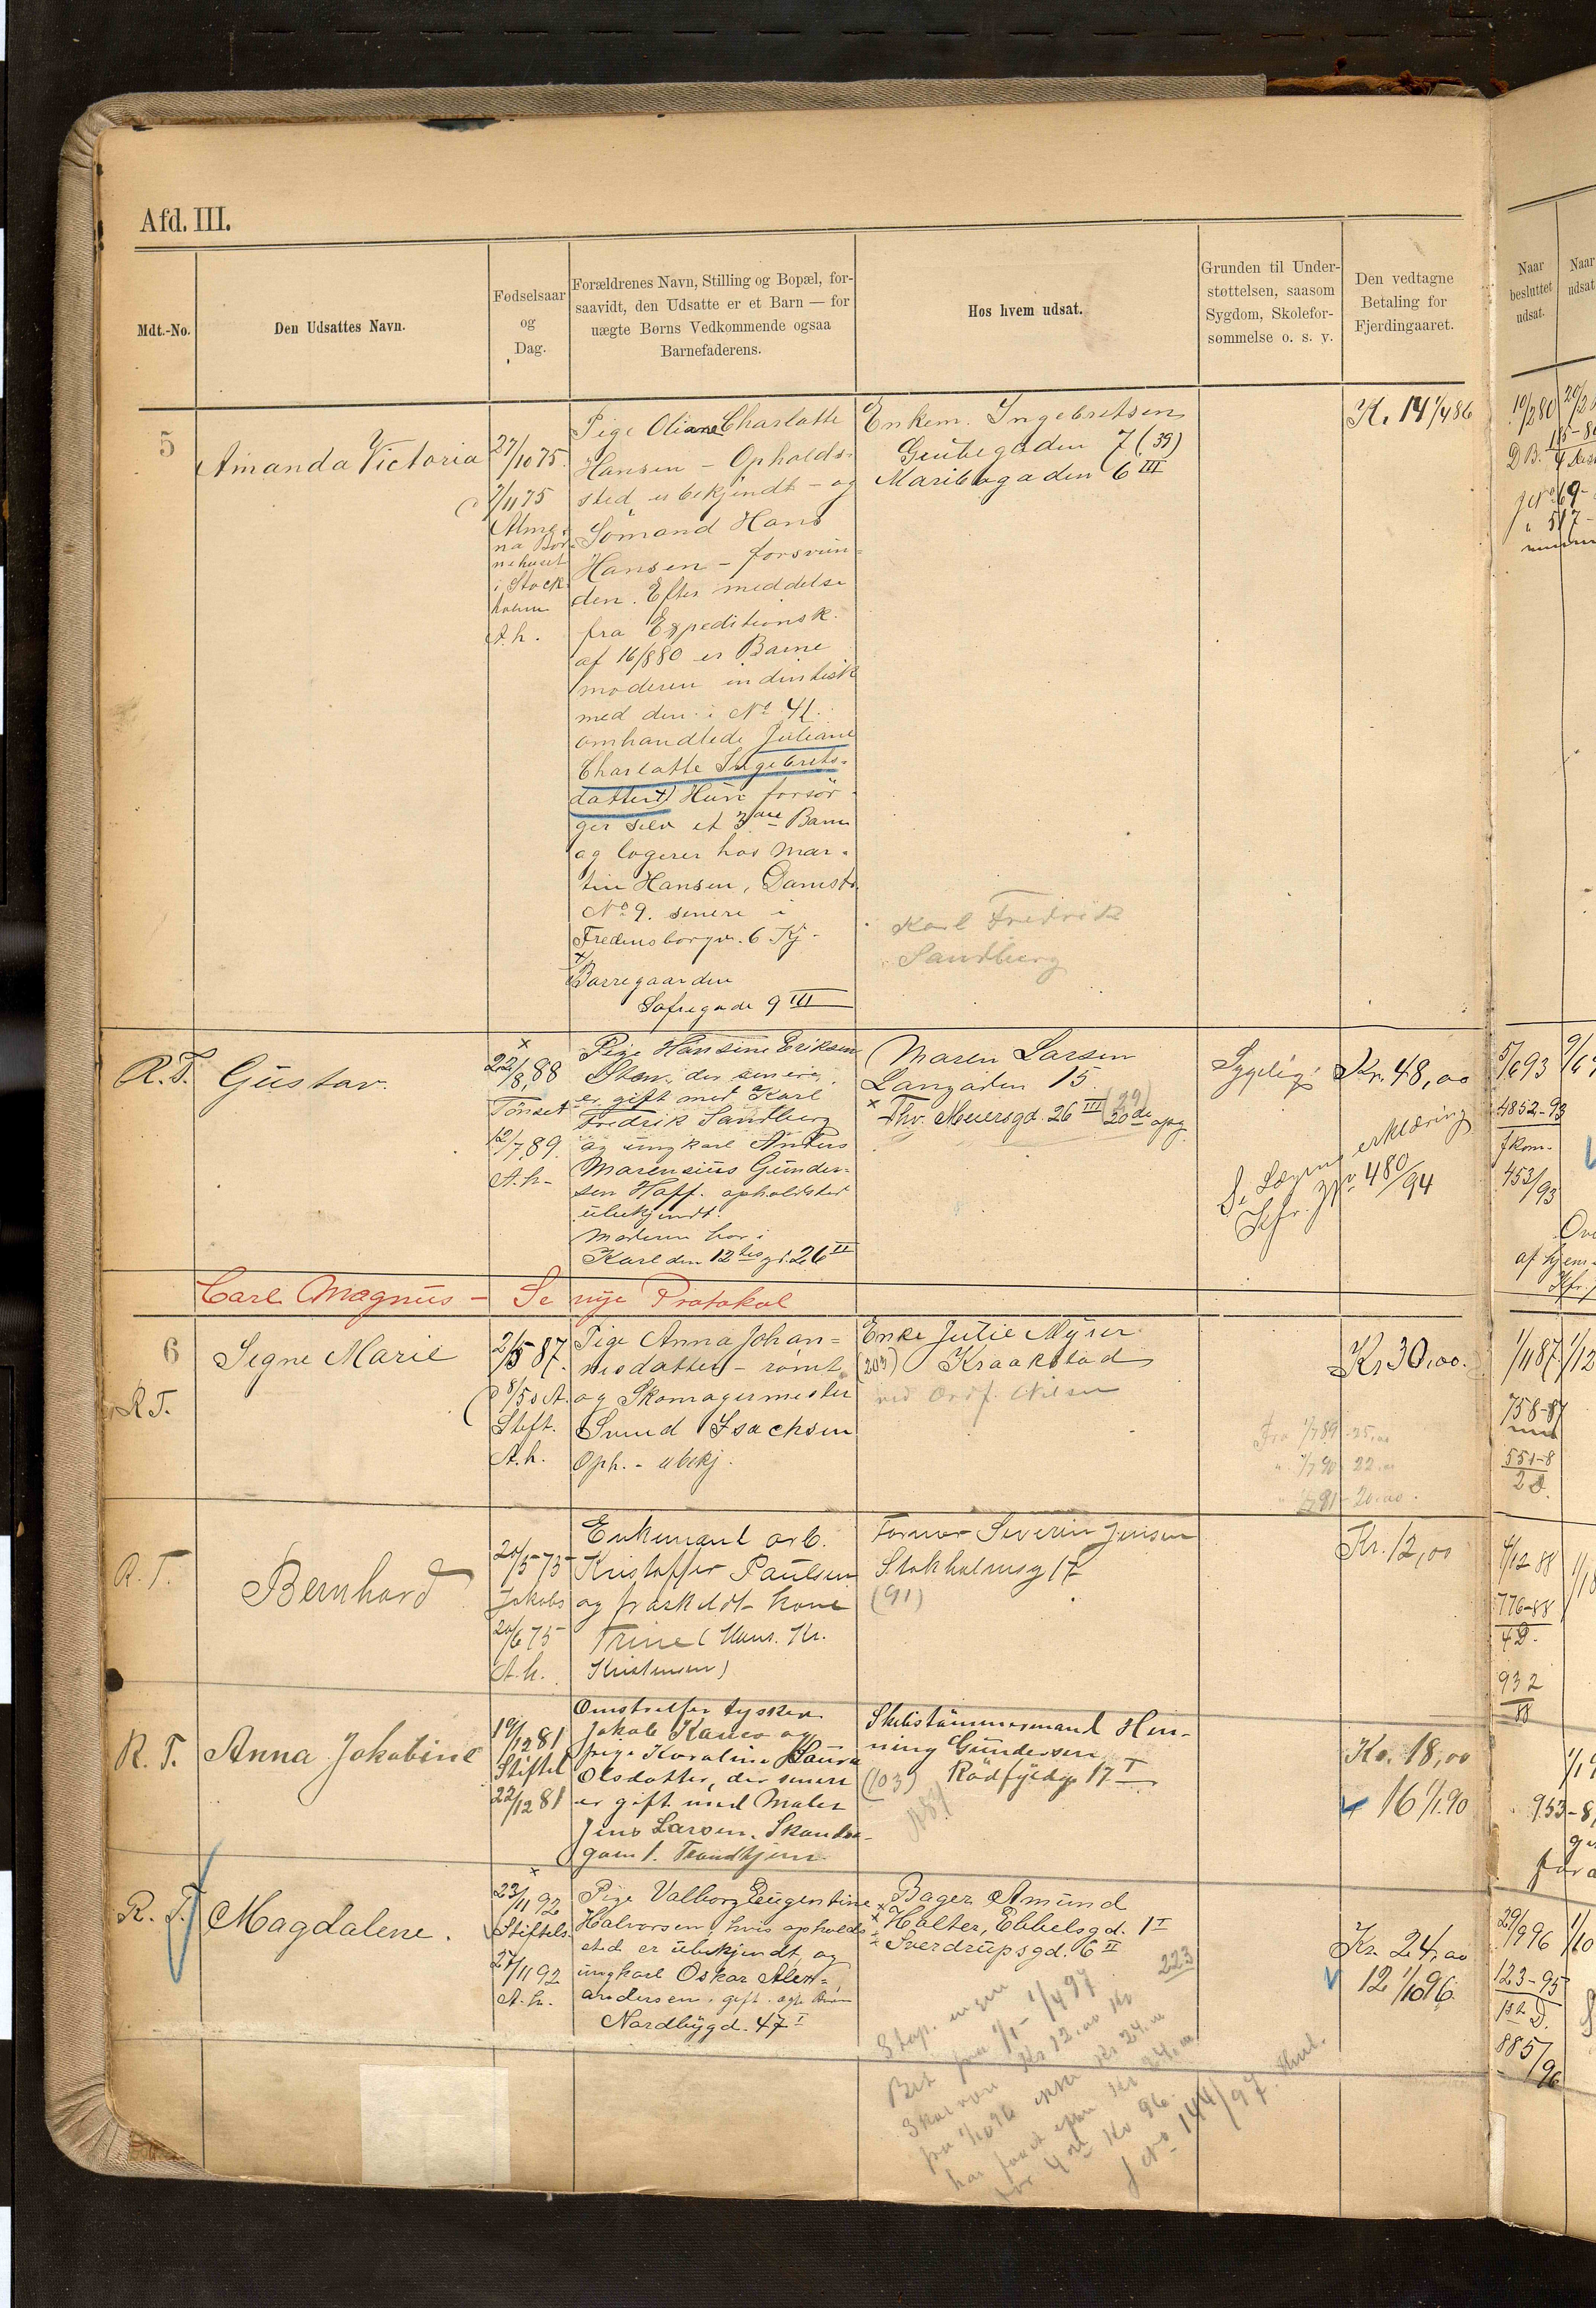 Afd. III.
Mdt.-No.
Den Udsattes Navn.
Fødselsaar
og
Dag.
Forældrenes Navn, Stilling og Bopæl, for-
saavidt, den Udsatte er et Barn — for
uægte Børns Vedkommende ogsaa
Barnefaderens.
Hos hvem udsat.
Grunden til Under-
støttelsen, saasom
Sygdom, Skolefor-
sømmelse o. s. v.
Den vedtagne
Betaling for
Fjerdingaaret.
Naar
besluttet
udsat.
Naar
udsat
5
Amanda Victoria
27/10 75.
7/11 75
Alme
na Bør-
nehuset
i Stock
holm
A.h.
Pige Oliane Charlotte
Hansen - Opholds-
sted ubekjendt - og
Sømand Hans
Hansen - forsvun-
den. Efter meddelse
fra Expeditionsk.
af 16/8 80 er Barne
moderen indentisk
med den i No 41.
omhandlede Juliane
Charlotte Ingebrets-
datter x) Hun forsør-
ger selv et 3die Barn
og logerer hos Mar-
tin Hansen, Damst.
No 9. senere i
Fredensborgv. 6 Kj.
x)
Borregaarden
Sofiegade 9 III
Enkem. Ingebretsen
Grubegaden 7 (39)
Maribogaden 6 III
Karl Fredrik
Sandberg
K. 14 1/4 86
10/2 80
R.T.
Gustav.
x
22/8 88
Tönset
12/7 89.
A.h.
Pige Hansine Eriksen
Støen, der senere
er gift med Karl
Fredrik Sandberg
og ungkarl Anders
Marensius Gunder-
sen Haff. opholdsted
ubekjendt.
Moderen bor i
Karl den 12tes gd. 26 II
Maren Larsen
Langaden 15.
x Thv. Meiersgd. 26 III (29)
20de opg.
Sygelig
Se Lægeerklæring
Kfr. Jn. 480/94
Kr. 48,00
5/6 93
4852-93
fkom.
453/93
Carl Magnus - Se nye Protokol
6
R.T.
Segne Marie
2/5 87.
8/5 s.A.
Stift.
A.h.
Pige Anna Johan-
nesdatter - rømt
og Skomagermester
Svend Isachsen
Oph. - ubekj.
Enke Julie Myrer
(203) Kraakstad
ved Ordf. Nilsen
Kr 30,00.
Fra 1/7 89 - 25,00
" 1/7 90 22.00
" 1/7 91 - 20.00.
1/11 87
758-87
551-8
2 D.
R.T.
Bernhard
20/5 75
Jakobs
20/6 75
A.h.
Enkemand arb.
Kristoffer Paulsen
og fraskildt kone
Trine (Hans. Kr.
Kristensen)
Former Severin Jensen
Stokholmsg 17
(91)
Kr. 12,00
4/12 88
776-88
4 D.
932
88
R.T.
Anna Jakobine
19/12 81
Stiftel
22/12 81
Omstreifer tysker
Jakob Karco og
pige Karoline Laura
Olsdatter, der senere
er gift med Maler
Jens Larsen, Skanda-
gaen 1. Trondhjem
Skibstømmermand Hen-
ning Gundersen
(103) Rødfyldg 17 I
Kr. 18,00
16 1/1.90
953-8
R.T.
Magdalene.
x
23/11 92
Stiftels.
27/11 92
A.h.
Pige Valborg Eugentine
Halvorsen, hvis opholds
sted er ubekjendt, og
ungkarl Oskar Alex-
andersen, gift
Nordbygd. 47 I
Bager Amund
x Halter, Ebbelsgd. 1 I
Sverdrupsgd. 6 II
223
Kr. 24,00
12 1/10 96.
29/9 96
123-95
1ste D.
885/96
Jno 144/97.